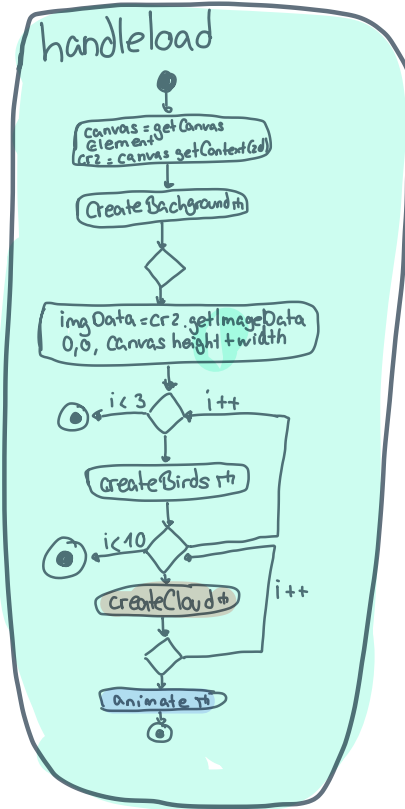 handleload
canvas = getCanvas
Element
cr2 = canvas getContext(2d)
CreateBackground
imgData = cr2.getImageData
0,0, Canvas height + width
i < 3
i++
createBirds
i<10
createCloud
i++
animate